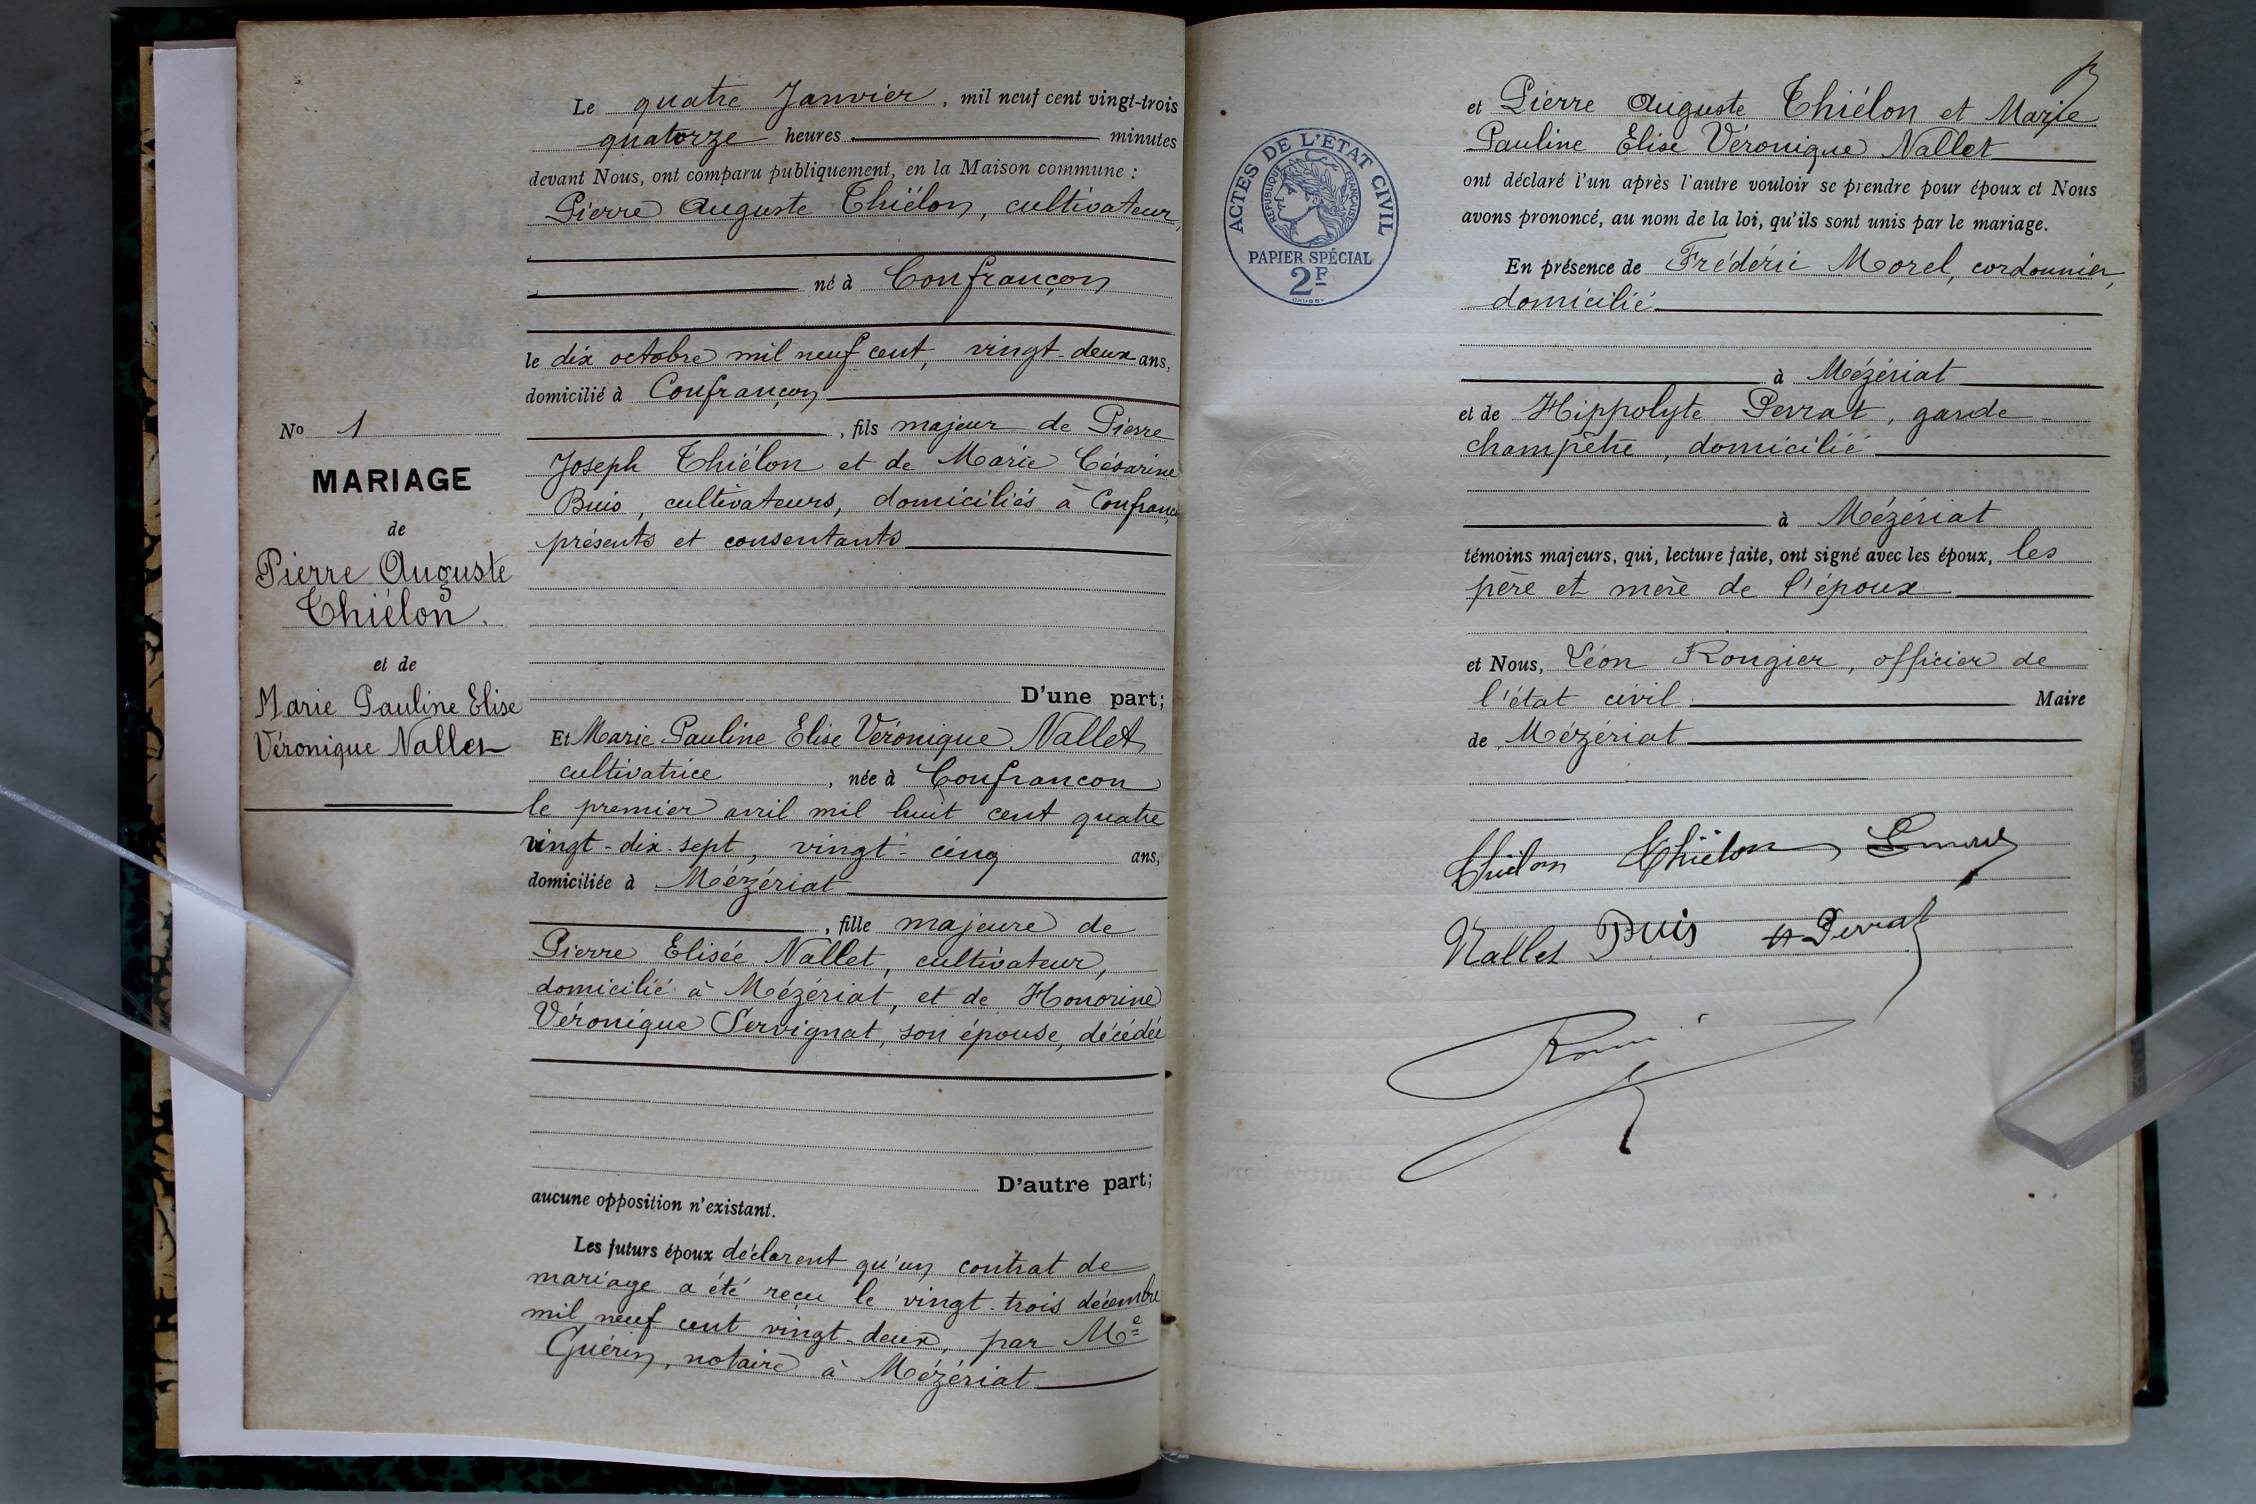 Le quatre Janvier, mil neuf cent vingt-trois
quatorze heures minutes
devant Nous, ont comparu publiquement, en la Maison commune :
Pierre Auguste Thiélon, cultivateur,
né à Confrançon
le dix octobre mil neuf cent, vingt-deux ans,
domicilié à Confrançon
, fils majeur de Pierre
Joseph Thiélon et de Marie Césarine
Buis, cultivateurs, domiciliés à Confrançon
présents et consentants
D'une part;
No 1
MARIAGE
de
Pierre Auguste
Thiélon.
et de
Marie Pauline Elise
Véronique Nallet
Et Marie Pauline Elise Véronique Nallet
cultivatrice, née à Confrancon
le premier avril mil huit cent quatre
vingt-dix-sept, vingt-cinq ans,
domiciliée à Mézériat
, fille majeure de
Pierre Elisée Nallet, cultivateur,
domicilié à Mézériat, et de Honorine
Véronique Servignat, son épouse, décédée
D'autre part;
aucune opposition n'existant.
Les futurs époux déclarent qu'un contrat de
mariage a été reçu le vingt-trois décembre
mil neuf cent vingt-deux, par Me
Guérin, notaire à Mézériat
ACTES DE L'ÉTAT CIVIL
RÉPUBLIQUE FRANÇAISE
PAPIER SPÉCIAL
2F
et Pierre Auguste Thiélon et Marie
Pauline Elise Véronique Nallet
ont déclaré l'un après l'autre vouloir se prendre pour époux et Nous
avons prononcé, au nom de la loi, qu'ils sont unis par le mariage.
En présence de Frédéric Morel, cordonnier,
domicilié
à Mézériat
et de Hippolyte Perrat, garde
champêtre, domicilié
à Mézériat
témoins majeurs, qui, lecture faite, ont signé avec les époux, les
père et mère de l'époux
et Nous, Léon Rougier, officier de
l'état civil Maire
de Mézériat
Thiélon Thiélon
Nallet Buis H Perrat